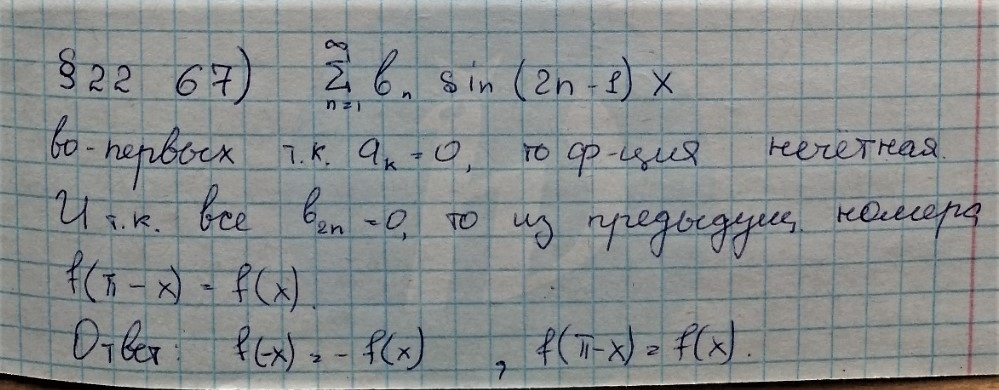 § 22 67) ∞ Σ n=1 bₙ sin (2n-1) x
во-первых т.к. aₖ = 0, то ф-ция нечётная.
И т.к. все b₂ₙ = 0, то из предыдущ. номера
f(π - x) = f(x).
Ответ: f(-x) = - f(x) , f(π-x) = f(x).